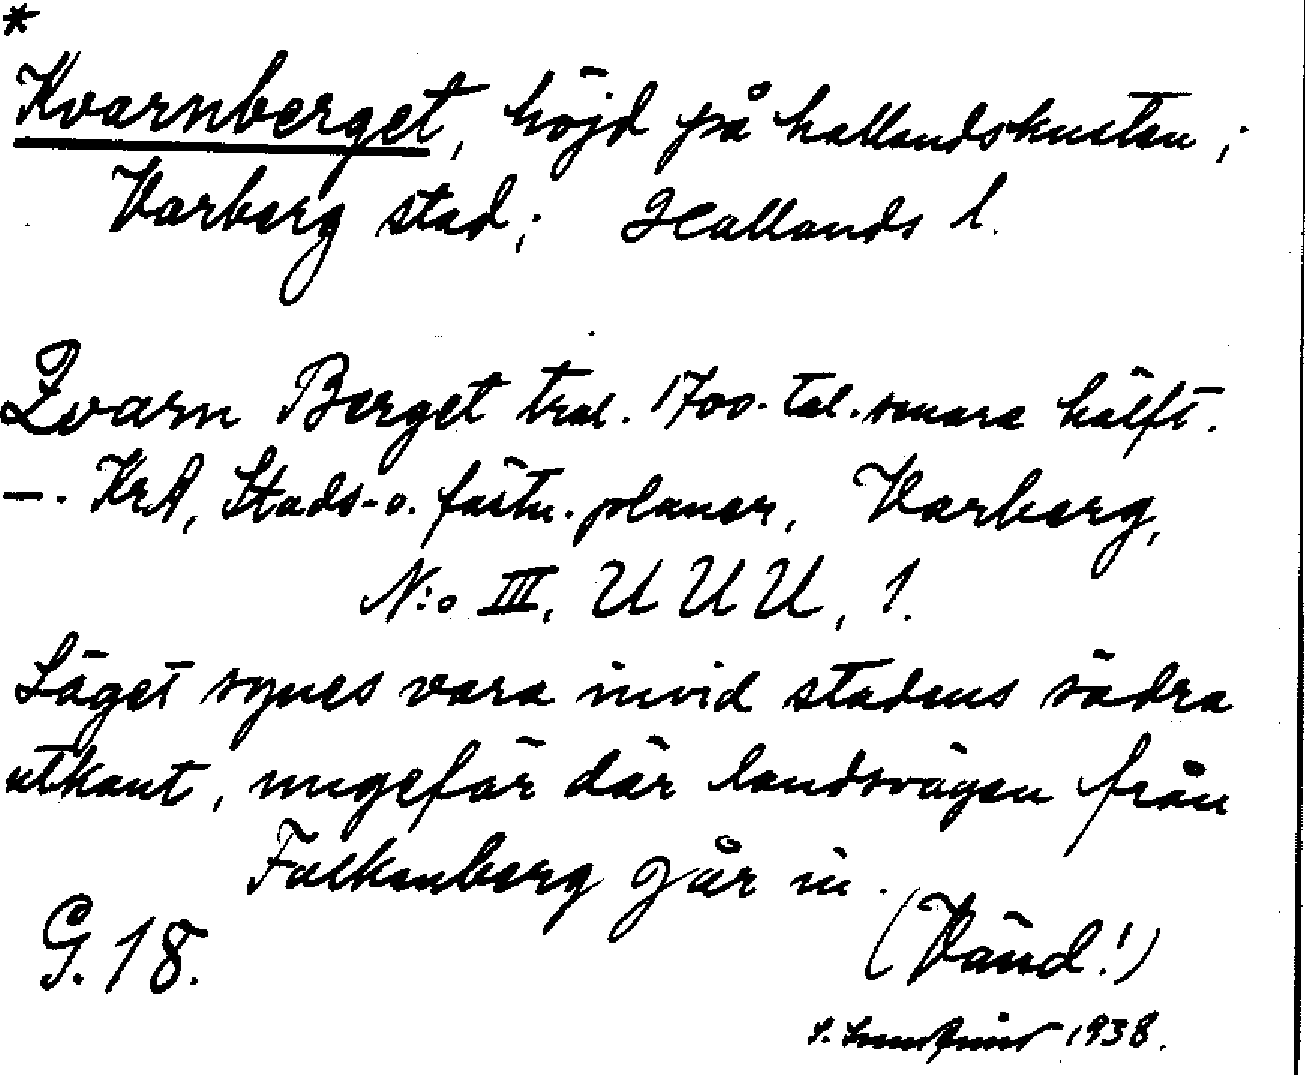 *
Kvarnberget, höjd på hallandskusten;
Varberg stad; Hallands l.
Qvarn Berget trol. 1700-tal. senare hälft.
—. KrA, Stads- o. fästn. planer, Varberg,
N:o III, U U U, 1.
Läget synes vara invid stadens södra
utkant, ungefär där landsvägen från
Falkenberg går in.
G. 18.
(Vänd!)
1938.